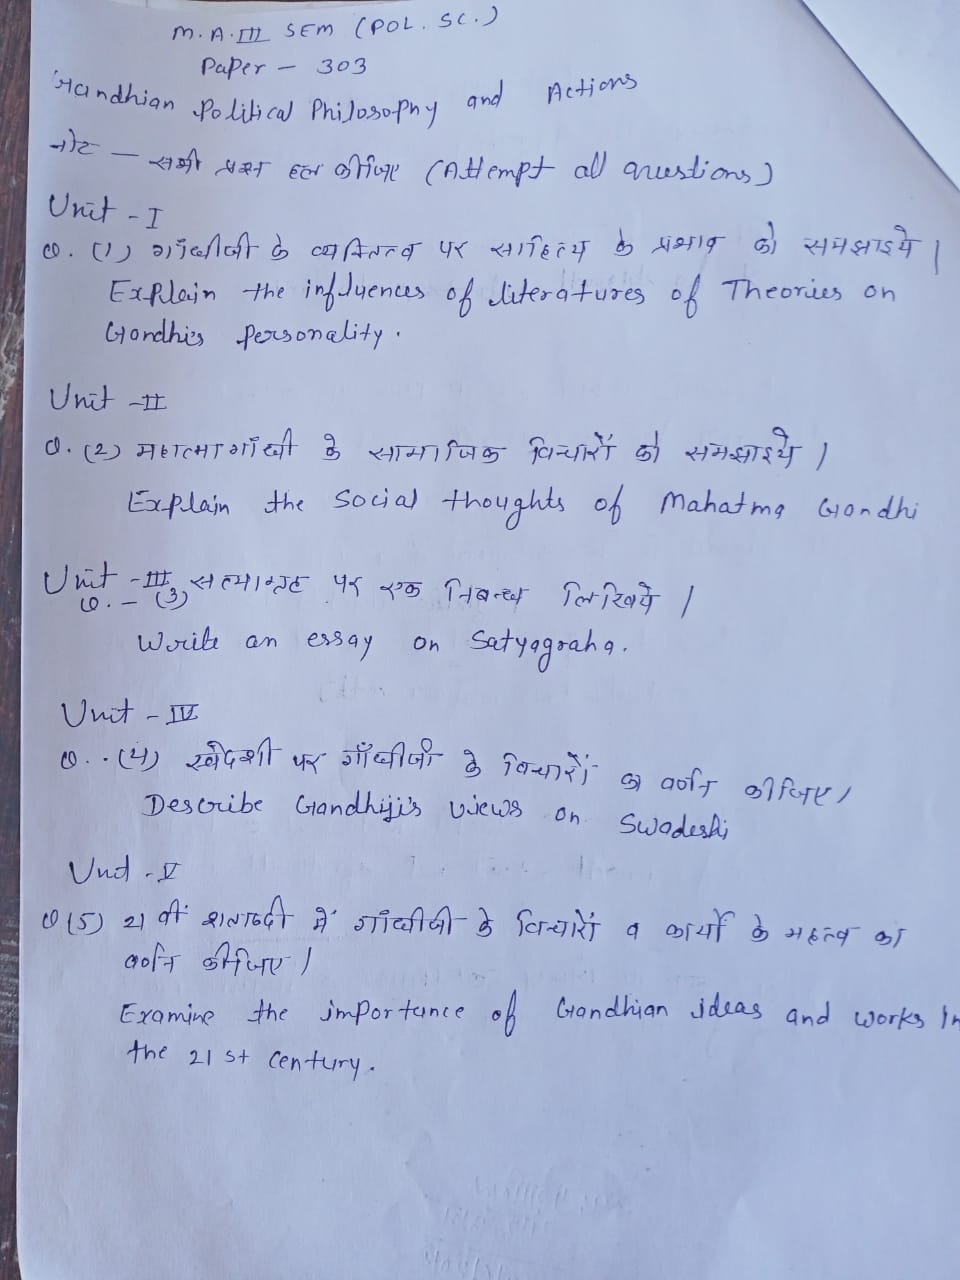 M.A. III SEM (POL. SC.)
Paper - 303
Gandhian Political Philosophy and Actions
नोट - सभी प्रश्न हल कीजिए (Attempt all questions)
Unit - I
Q. (1) गाँधीजी के व्यक्तित्व पर साहित्य के प्रभाव को समझाइये |
Explain the influences of literatures of Theories on
Gandhi's personality.
Unit - II
Q. (2) महात्मा गाँधी के सामाजिक विचारों को समझाइये |
Explain the Social thoughts of Mahatma Gandhi
Unit - III
Q. - (3) सत्याग्रह पर एक निबन्ध लिखिये |
Write an essay on Satyagraha.
Unit - IV
Q. . (4) स्वदेशी पर गाँधीजी के विचारों का वर्णन कीजिए |
Describe Gandhiji's views on Swadeshi
Unit - V
Q (5) 21 वीं शताब्दी में गाँधीजी के विचारों व कार्यों के महत्व का
वर्णन कीजिए |
Examine the importance of Gandhian ideas and works in
the 21 st Century.